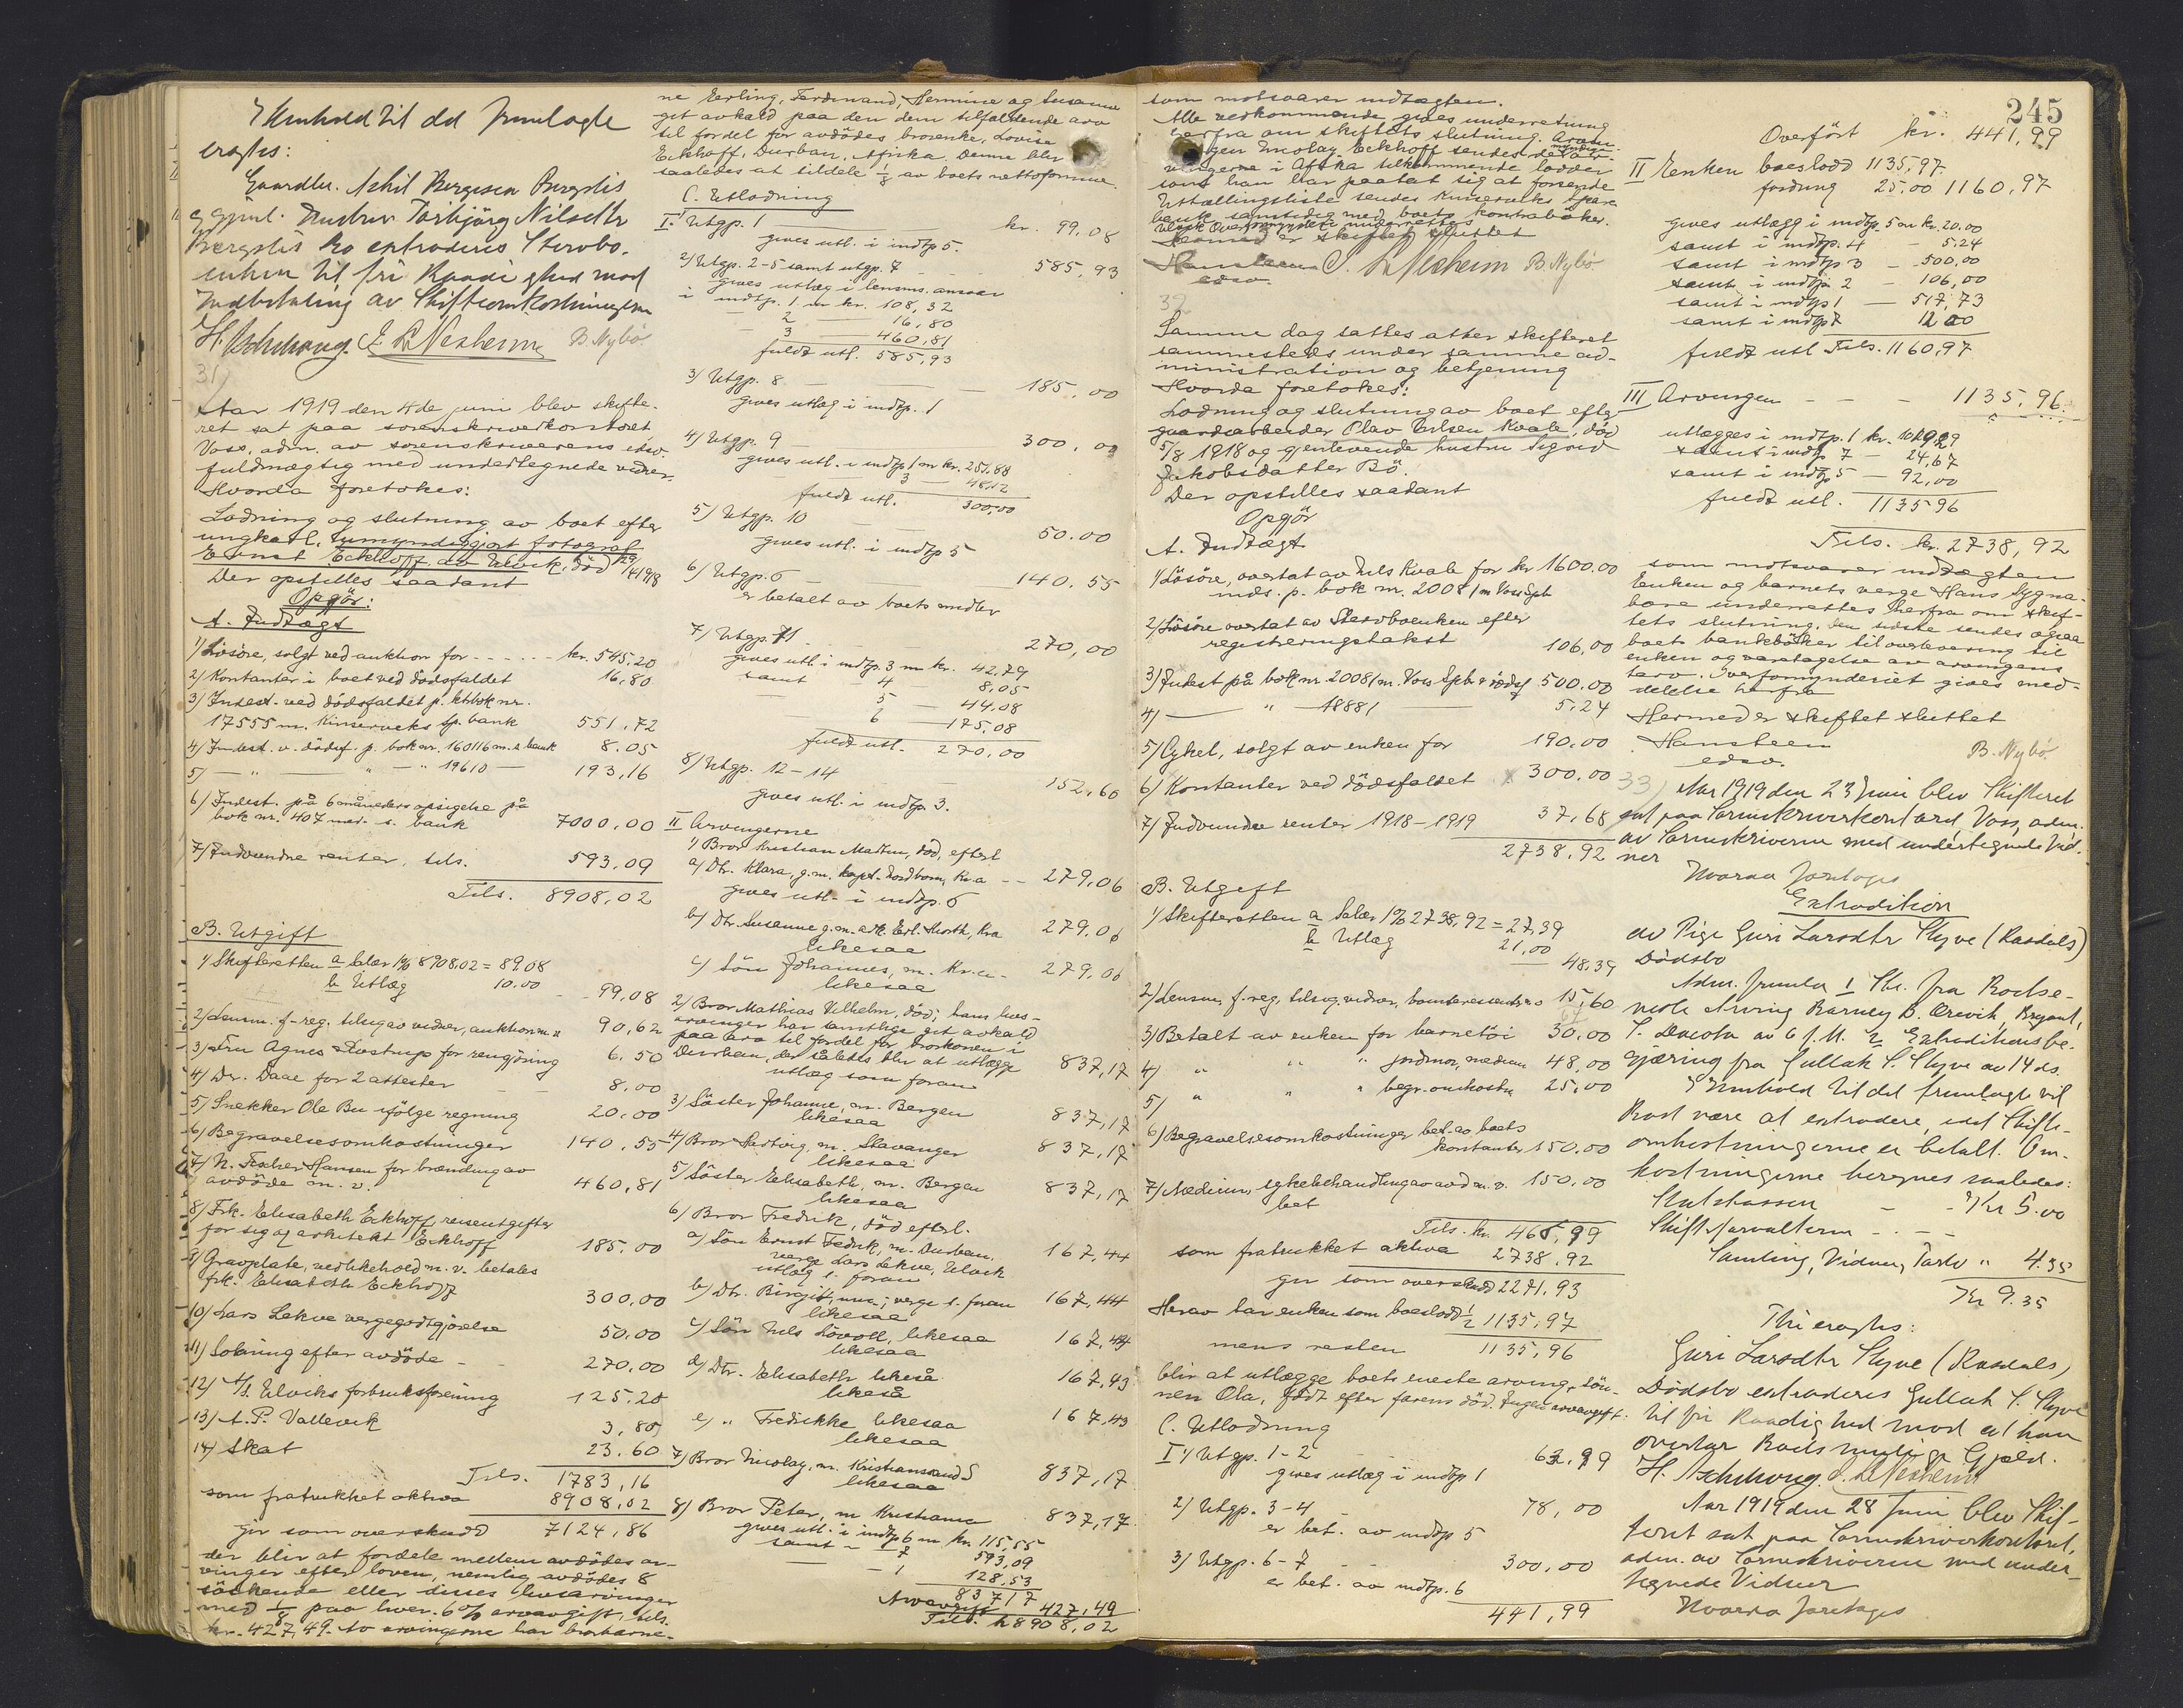 I Henhold til det fremlagte
eragtes:
Gaardbr. Ashil Bergesen Bergslis
og gjenl. Hustru Torbjörg Nilsdtr
Bergslis Bo extraderes Stervbo-
enken til fri Raadighed mod
Indbetaling av Skifteomkostningerne
H. Aschehoug. E L Nesheim B. Nybö
31)
Aar 1919 den 4de juni blev skifte-
ret sat paa sorenskriverkontoret
Voss, adm. av sorenskriverens edsv.
fuldmægtig med undertegnede vidner.
Hvorda foretokes:
Lodning og slutning av boet efter
ungkarl, umyndiggjort fotograf
Ernst Eckhoff av Ulvik, död 29/4 1918
Der opstilles saadant
Opgjör:
A. Indtægt
1) Lösöre, solgt ved auktion for - - - - - - kr. 545.20
2) Kontanter i boet ved dödsfaldet 16,80
3) Indest. ved dödsfaldet p. ktrbok nr.
17555 m. Kinserviks sp. bank 551,72
4) Indest. v. dödsf. p. bok nr. 160116 m. s. bank 8.05
5) — " — " — " 19610 — 193,16
6) Indest. på 6 måneders opsigelse på
bok nr. 407 med s. bank 7000.00
7) Indvundne renter, tils. 593.09
Tils. 8908,02
B. Utgift
1) Skifteretten a Salær 1% 8908.02 = 89.08
b Utlæg 10.00
- - 99,08
2) Lensm. f. reg. tilsig. av vidner, auktion m. v. 90,62
3) Fru Agnes Aostrup for rengjöring 6.50
4) Dr. Daae for 2 attester 8.00
5) Snekker Ole Bu ifölge regning 20.00
6) Begravelsesomkostninger 140.55
7) N. Fischer Hansen for brænding av
avdöde m. v. 460,81
8) Frk. Elisabeth Eckhoff reiseutgifter
for sig og arkitekt Eckhoff 185.00
9) Gravplate, vedlikehold m. v. betales
frk. Elisabeth Eckhoff 300.00
10) Lars Lekve vergegodtgjörelse 50.00
11) Sokning efter avdöde - - 270.00
12) A/S Ulviks forbruksforening 125.20
13) A. P. Vallevik 3,80
14) Skat 23.60
Tils. 1783,16
som fratrukket aktiva 8908,02
gir som overskudd 7124,86
der blir at fordele mellem avdödes ar-
vinger efter loven, nemlig avdödes 8
söskende eller disses livsarvinger
med 1/8 paa hver. 6% arveavgift, tils.
kr. 427,49. Av arvingerne har brorbarne-
ne Erling, Ferdinand, Hermine og Susanne
git avkald paa den dem tilfaldende arv
til fordel for avdödes brorenke, Lovise
Eckhoff, Durban, Afrika. Denne blir
saaledes at tildele 1/8 av boets nettoformue.
C. Utlodning
I. 1) Utgp. 1 kr. 99,08
gives utl. i indtp 5.
2) Utgp. 2-5 samt utgp. 7 - - 585,93
gives utlæg i lensms. ansvar
i indtp. 1 m kr. 108,32
— 2 — 16,80
— 3 — 460,81
fuldt utl. 585,93
3) Utgp. 8 — — — 185,00
gives utlæg i indtp. 1
4) Utgp. 9 300,00
gives utl. i indtp 1 m kr. 251.88
3 — 48.12
fuldt utl. 300,00
5) Utgp. 10 — 50.00
gives utl. i indtp 5
6) Utgp. 6 — 140.55
er betalt av boets midler
7) Utgp. 11 — 270,00
gives utl i indtp. 3 m kr. 42,79
samt — 4 8.05
5 — 44.08
6 — 175,08
fuldt utl. 270,00
8) Utgp. 12-14 152,60
gives utl. i indtp 3.
II Arvingerne
1) Bror Kristian Madten, död, efterl
a) Dtr. Klara, g.m. kapt. Nordbom, Kr.a - - 279,06
gives utl. i indtp. 6
b) Dtr. Susanne g.m. ark. Erl. Kurth, Kra 279.06
likesaa
c) Sön Johannes, m. Kr.a - 279.06
likesaa
2) Bror Mathias Vilhelm, död; hans livs-
arvinger har samtlige git avkald
paa arv til fordel for brorkonen i
Durban, der således blir at utlægge
utlæg som foran 837,17
3) Söster Johanne, m. Bergen 837,17
likesaa
4) Bror Hartvig, m. Stavanger 837,17
likesaa
5) Söster Elisabeth, m. Bergen 837,17
likesaa
6) Bror Fredrik, död efterl.
a) Sön Ernst Fredrik, m. Durban. 167,44
verge Lars Lekve, Ulvik
utlæg s. foran
b) Dtr. Birgit, verge s. foran 167,44
likesaa
c) Sön Nils Lövoll, likesaa 167,44
likesaa
d) Dtr. Elisabeth likeså 167,43
likeså
e) " Fredikke likesaa 167,43
likesaa
7) Bror Nicolay, m. Kristianssand S 837,17
likesaa
8) Bror Peter, m Kristiania 837,17
gives utl. i indtp 6 m kr. 115,55
samt - - 7 593,09
— 1 128,53
837,17
Arveavgift 427,49
Tils. kr 8908,02
som motsvarer indtægten.
Alle vedkommende gives underretning
herfra om skiftets slutning. Arvin-
gen Nicolay Eckhoff sendes de myndige
arvingerne i Afrika tilkommende lodder
som han har paatat sig at forsende
Utbetalingsliste sendes Kinserviks Spare
bank samtidig med boets kontraböker.
Ulvik Overformynderi underrettes
Hermed er skiftet sluttet
Hansteen E. L Nesheim B. Nybö
edsv.
32
Samme dag sattes atter skifteret
sammesteds under samme ad-
ministration og betjening
Hvorda foretokes:
Lodning og slutning av boet efter
gaardsarbeider Olav Nilsen Kvale, död
5/8 1918 og gjenlevende hustru Sigrid
Jakobsdatter Bö.
Der opstilles saadant
Opgjör
A. Indtægt
1) Lösöre, overtat av Nils Kvale for kr 1600.00
inds. p. bok nr. 2008 / m Voss Spb
2) Lösöre overtat av Stervboenken efter
registreringstakst 106,00
3) Indest på bok nr 2008 / m. Voss Spb v. dödsf 500.00
4) — " — 18881 — 5.24
5) Cykel, solgt av enken for 190.00
6) Kontanter ved dödsfaldet x 300.00
7) Indvundne renter 1918-1919 37,68
2738.92
B. Utgift
1) Skifteretten a Salær 1% 2738,92 = 27,39
b Utlæg 21,00
— 48.39
2) Lensm. f. reg. tilsig. vidner, 15,60
3) Betalt av enken for barnetöi 30.00
4) " " " jordmor, medicin 48,00
5) " " " begr. omkostn 25.00
6) Begravelsesomkostninger bet. av boets
kontanter 150.00
7) Medicin, sykebehandling av avd m. v. 150.00
bet
Tils. kr. 466,99
som fratrukket aktiva 2738,92
gir som overskudd 2271,93
Herav har enken som boeslodd 1/2 1135,97
mens resten 1135,96
blir at utlægge boets eneste arving, sön-
nen Ola, födt efter farens död. Ingen arveavgift.
C. Utlodning
I 1) Utgp. 1-2 - - 63,99
gives utlæg i indtp 1
2) Utgp. 3-4 - 78,00
er bet. av indtp 5
3) Utgp. 6-7 - - 300,00
er bet. av indtp. 6
441,99
245
Overfört kr. 441,99
II Enken boeslodd 1135,97.
fordring 25.00 1160,97
gives utlægg i indtp. 5 m kr. 20.00
samt i indtp. 4 - 5.24
samt i indtp 3 - 500,00
samt i indtp 2 - 106,00
samt i indtp 1 - 517,73
samt i indtp 7 12.00
fuldt utl Tils. 1160,97
III Arvingen - - - 1135,96.
utlægges i indtp. 1 kr. 1019,29
samt i indtp 7 - 24,67
samt i indtp 5 - 92,00
fuldt utl. 113596
Tils. kr. 2738,92
som motsvarer indtægten
Enken og barnets verge Hans Sygna-
bore underrettes herfra om skif-
tets slutning, den sidste sendes ogsaa
boets bankböker til overlevering til
enken og varetagelse av arvingens
tarv. Overformynderiet gives med-
delelse herfra
Hermed er skiftet sluttet
Hansteen B. Nybö
edsv.
33) Aar 1919 den 23 Juni blev Skifteret
sat paa Sorenskriverkontoret, Voss, adm.
av Sorenskriveren med undertegnede Vid-
ner
Hvorda foretoges
Extradition
av Pige Guri Larsdtr Skyve (Rasdals)
Dödsbo
Adm. fremla 1 Skr. fra Bodse-
nede Arving Barney B. Orevik, Bryant,
S. Dacota av 6 f. M. 2 Extraditionsbe-
gjæring fra Gullak S. Skyve av 14 ds.
I Henhold til det fremlagte vil
Boet være at extradere, idet Skifte-
omkostningerne er betalt. Om-
kostningerne beregnes saaledes:
Statskassen - - Kr 5.00
Skifteforvalteren - . - -
Samling, Vidner, Tarlv " 4.35
Kr 9.35
Thi eragtes:
Guri Larsdtr Skyve (Rasdals)
Dödsbo extraderes Gullak S. Skyve
til fri Raadighed mod at han
overtar Boets mulige Gjæld.
H. Aschehoug. E. L Nesheim
Aar 1919 den 28 Juni blev Skif-
teret sat paa Sorenskriverkontoret,
adm. av Sorenskriveren med under-
tegnede Vidner
Hvorda foretoges